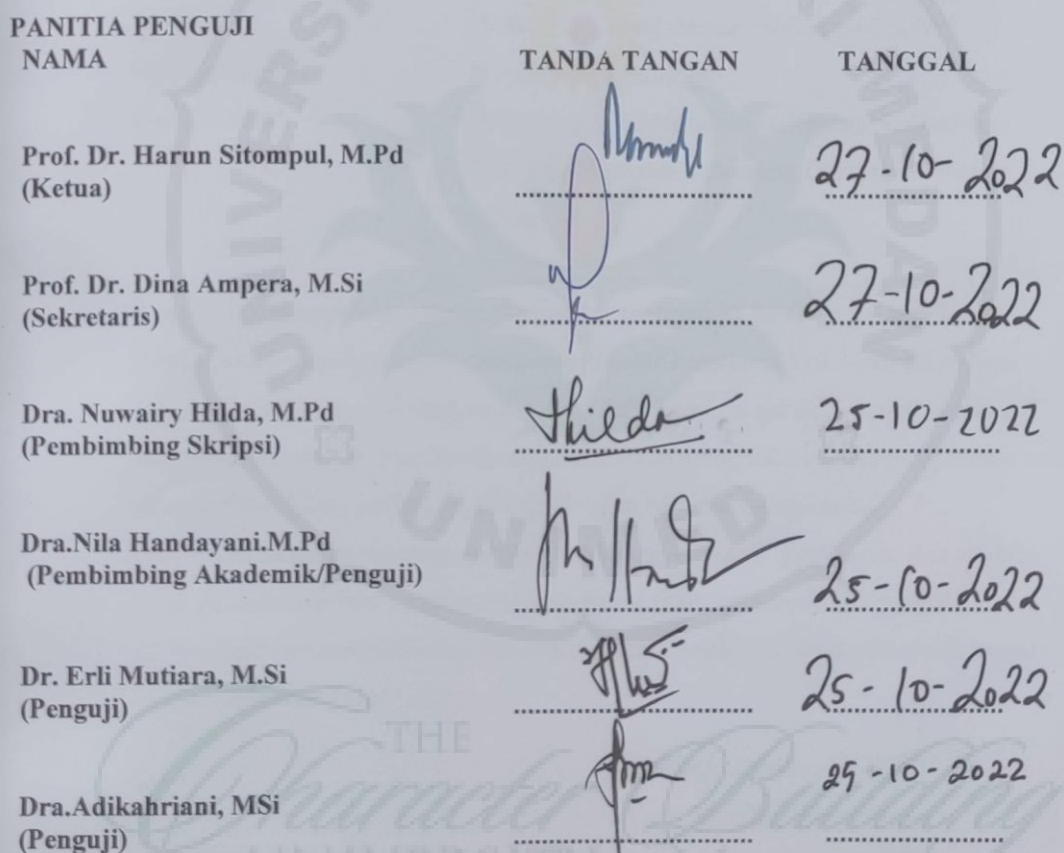 PANITIA PENGUJI
NAMA TANDA TANGAN TANGGAL
Prof. Dr. Harun Sitompul, M.Pd
(Ketua) 27-10-2022
Prof. Dr. Dina Ampera, M.Si
(Sekretaris) 27-10-2022
Dra. Nuwairy Hilda, M.Pd Hilda 25-10-2022
(Pembimbing Skripsi)
Dra.Nila Handayani.M.Pd
(Pembimbing Akademik/Penguji) 25-10-2022
Dr. Erli Mutiara, M.Si
(Penguji) 25-10-2022
Dra.Adikahriani, MSi 25-10-2022
(Penguji)
UNIVERSITAS NEGERI MEDAN
UNIMED
THE
Character Building